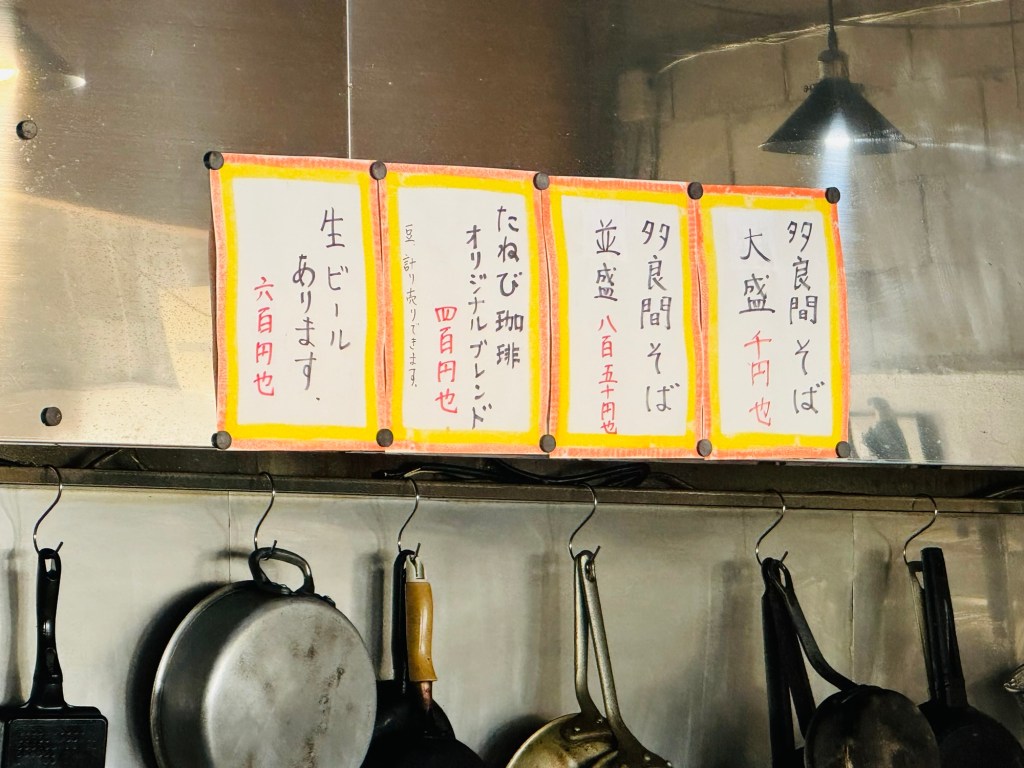 多良間そば
大盛
千円也
多良間そば
並盛
八百五十円也
たねび珈琲
オリジナルブレンド
四百円也
豆 計り売りできます。
生ビール
あります.
六百円也